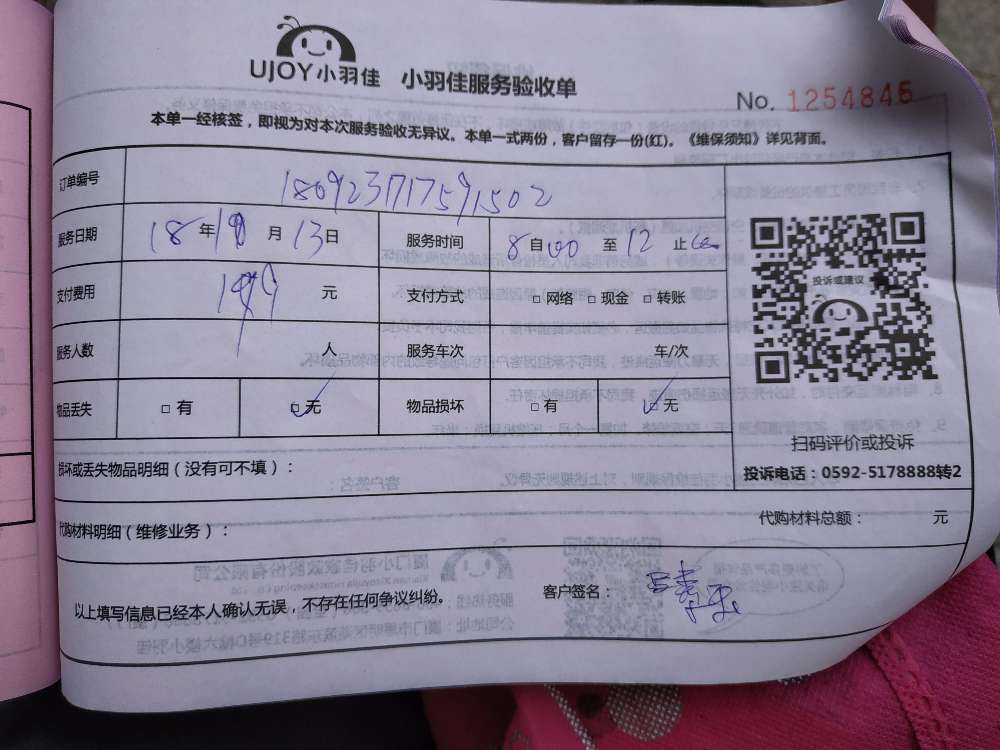 UJOY小羽佳 小羽佳服务验收单
No. 1254846
本单一经核签，即视为对本次服务验收无异议。本单一式两份，客户留存一份(红)。《维保须知》详见背面。
订单编号 180923717591502
服务日期 18年10月13日 服务时间 8自00至12止
支付费用 元 支付方式 □网络 □现金 □转账
服务人数 人 服务车次 车/次
物品丢失 □有 □无 物品损坏 □有 □无
投诉或建议
扫码评价或投诉
投诉电话：0592-5178888转2
损坏或丢失物品明细（没有可不填）：
代购材料明细（维修业务）：
代购材料总额： 元
以上填写信息已经本人确认无误，不存在任何争议纠纷。 客户签名：